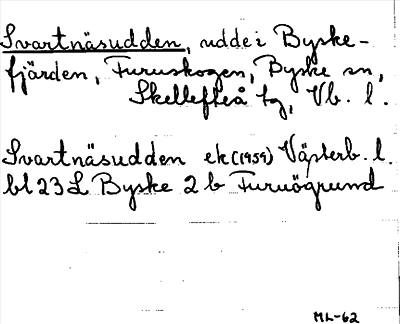 Svartnäsudden, udde i Byske-
fjärden, Furuskogen, Byske sn,
Skellefteå tg, Vb. l.
Svartnäsudden ek (1959) Västerb. l.
bl 23 L Byske 2 b Furuögrund
ML-62